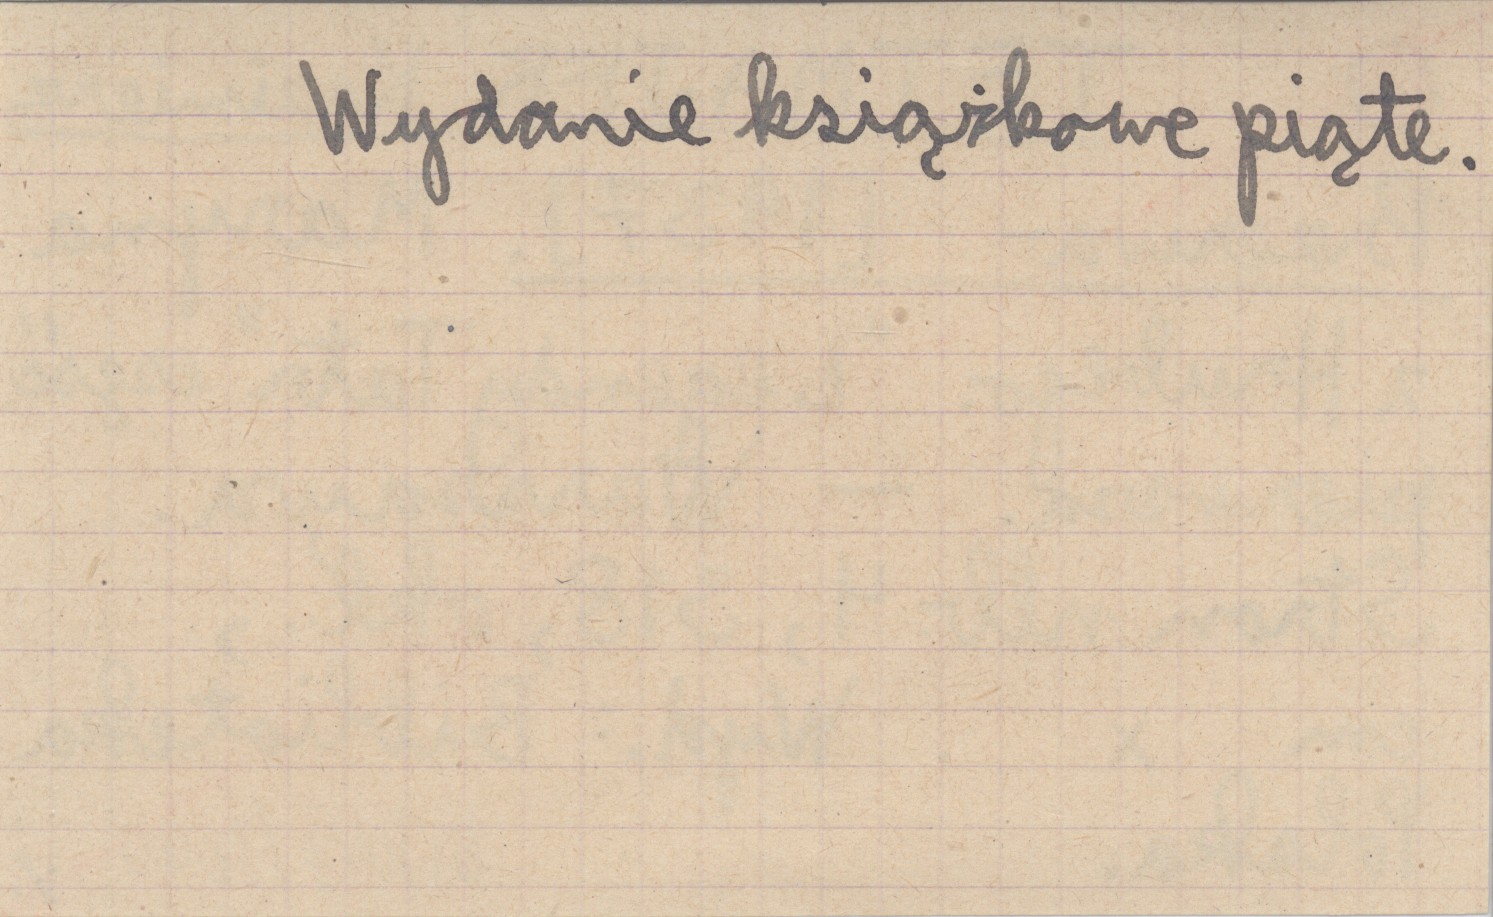 Wydanie książkowe piąte.